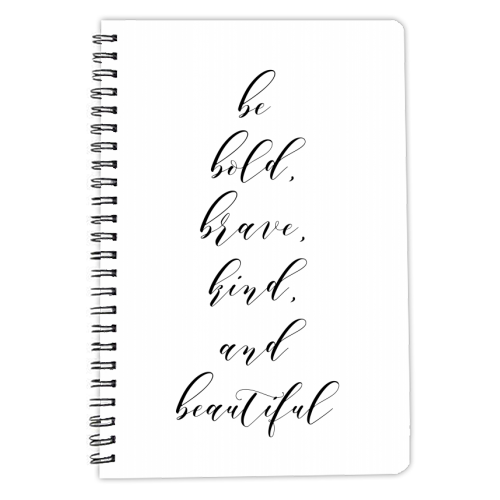 be
bold,
brave,
kind,
and
beautiful